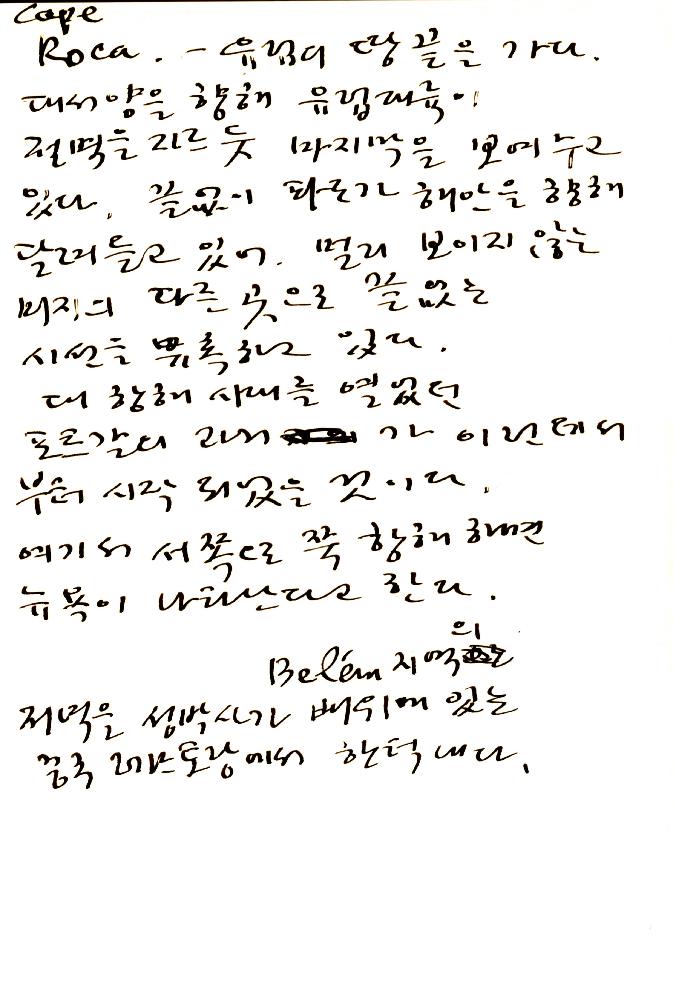 Cape
Roca. - 유럽의 땅 끝을 가다.
대서양을 향해 유럽대륙이
절벽을 지르듯 마지막을 보여주고
있다. 끝없이 파도가 해안을 향해
달려들고 있어. 멀리 보이지 않는
미지의 다른 곳으로 끝없는
시선을 유혹하고 있다.
대 항해 시대를 열었던
포르투갈의 가 이런데서
부터 시작 되었을 것이다.
여기서 서쪽으로 쭉 항해 하면
뉴욕이 나타난다고 한다.
Belém 지역의
저녁을 성박사가 배위에 있는
중국 레스토랑에서 한턱내다.